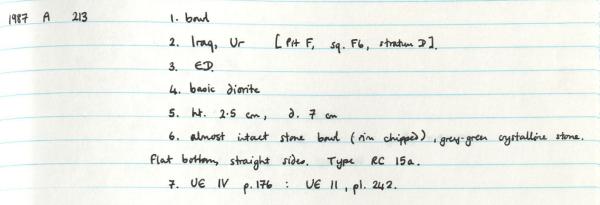 1987 A 213 1. bowl
2. Iraq, Ur [Pit F, sq. F6, stratum D].
3. ED.
4. basic diorite
5. ht. 2.5 cm, d. 7 cm
6. almost intact stone bowl (rim chipped), grey-green crystalline stone.
Flat bottom, straight sides. Type RC 15a.
7. UE IV p.176 : UE II, pl. 242.